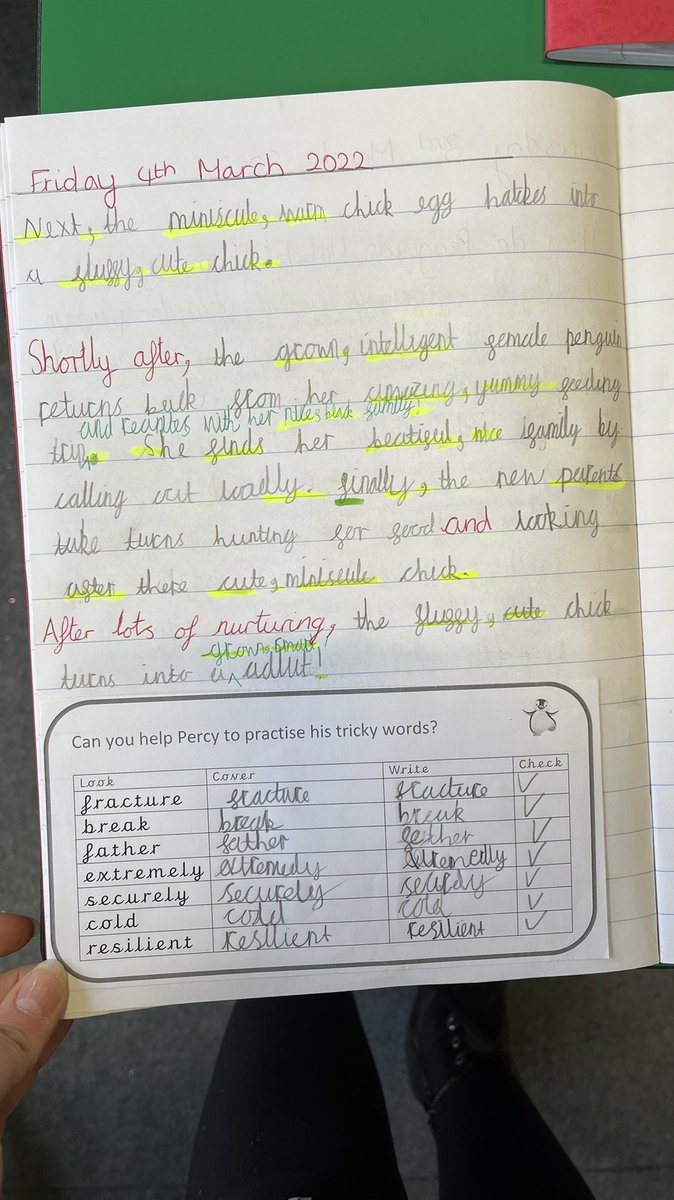 Friday 4th March 2022
Next, the miniscule, warm chick egg hatches into
a fluffy, cute chick.
Shortly after, the grown, intelligent female penguin
returns back from her amazing, yummy feeding
and reunites with her family!
trip. She finds her beatiful, nice family by
calling out loadly. finally, the new parents
take turns hunting for food and looking
after there cute, miniscule chick.
After lots of nurturing, the fluffy, cute chick
grown, smart
turns into a adlut!
Can you help Percy to practise his tricky words?
Look Cover Write Check
fracture fracture fracture ✓
break break break ✓
father father father ✓
extremely extremely extremedly ✓
securely securely securely ✓
cold cold cold ✓
resilient resilient resilient ✓